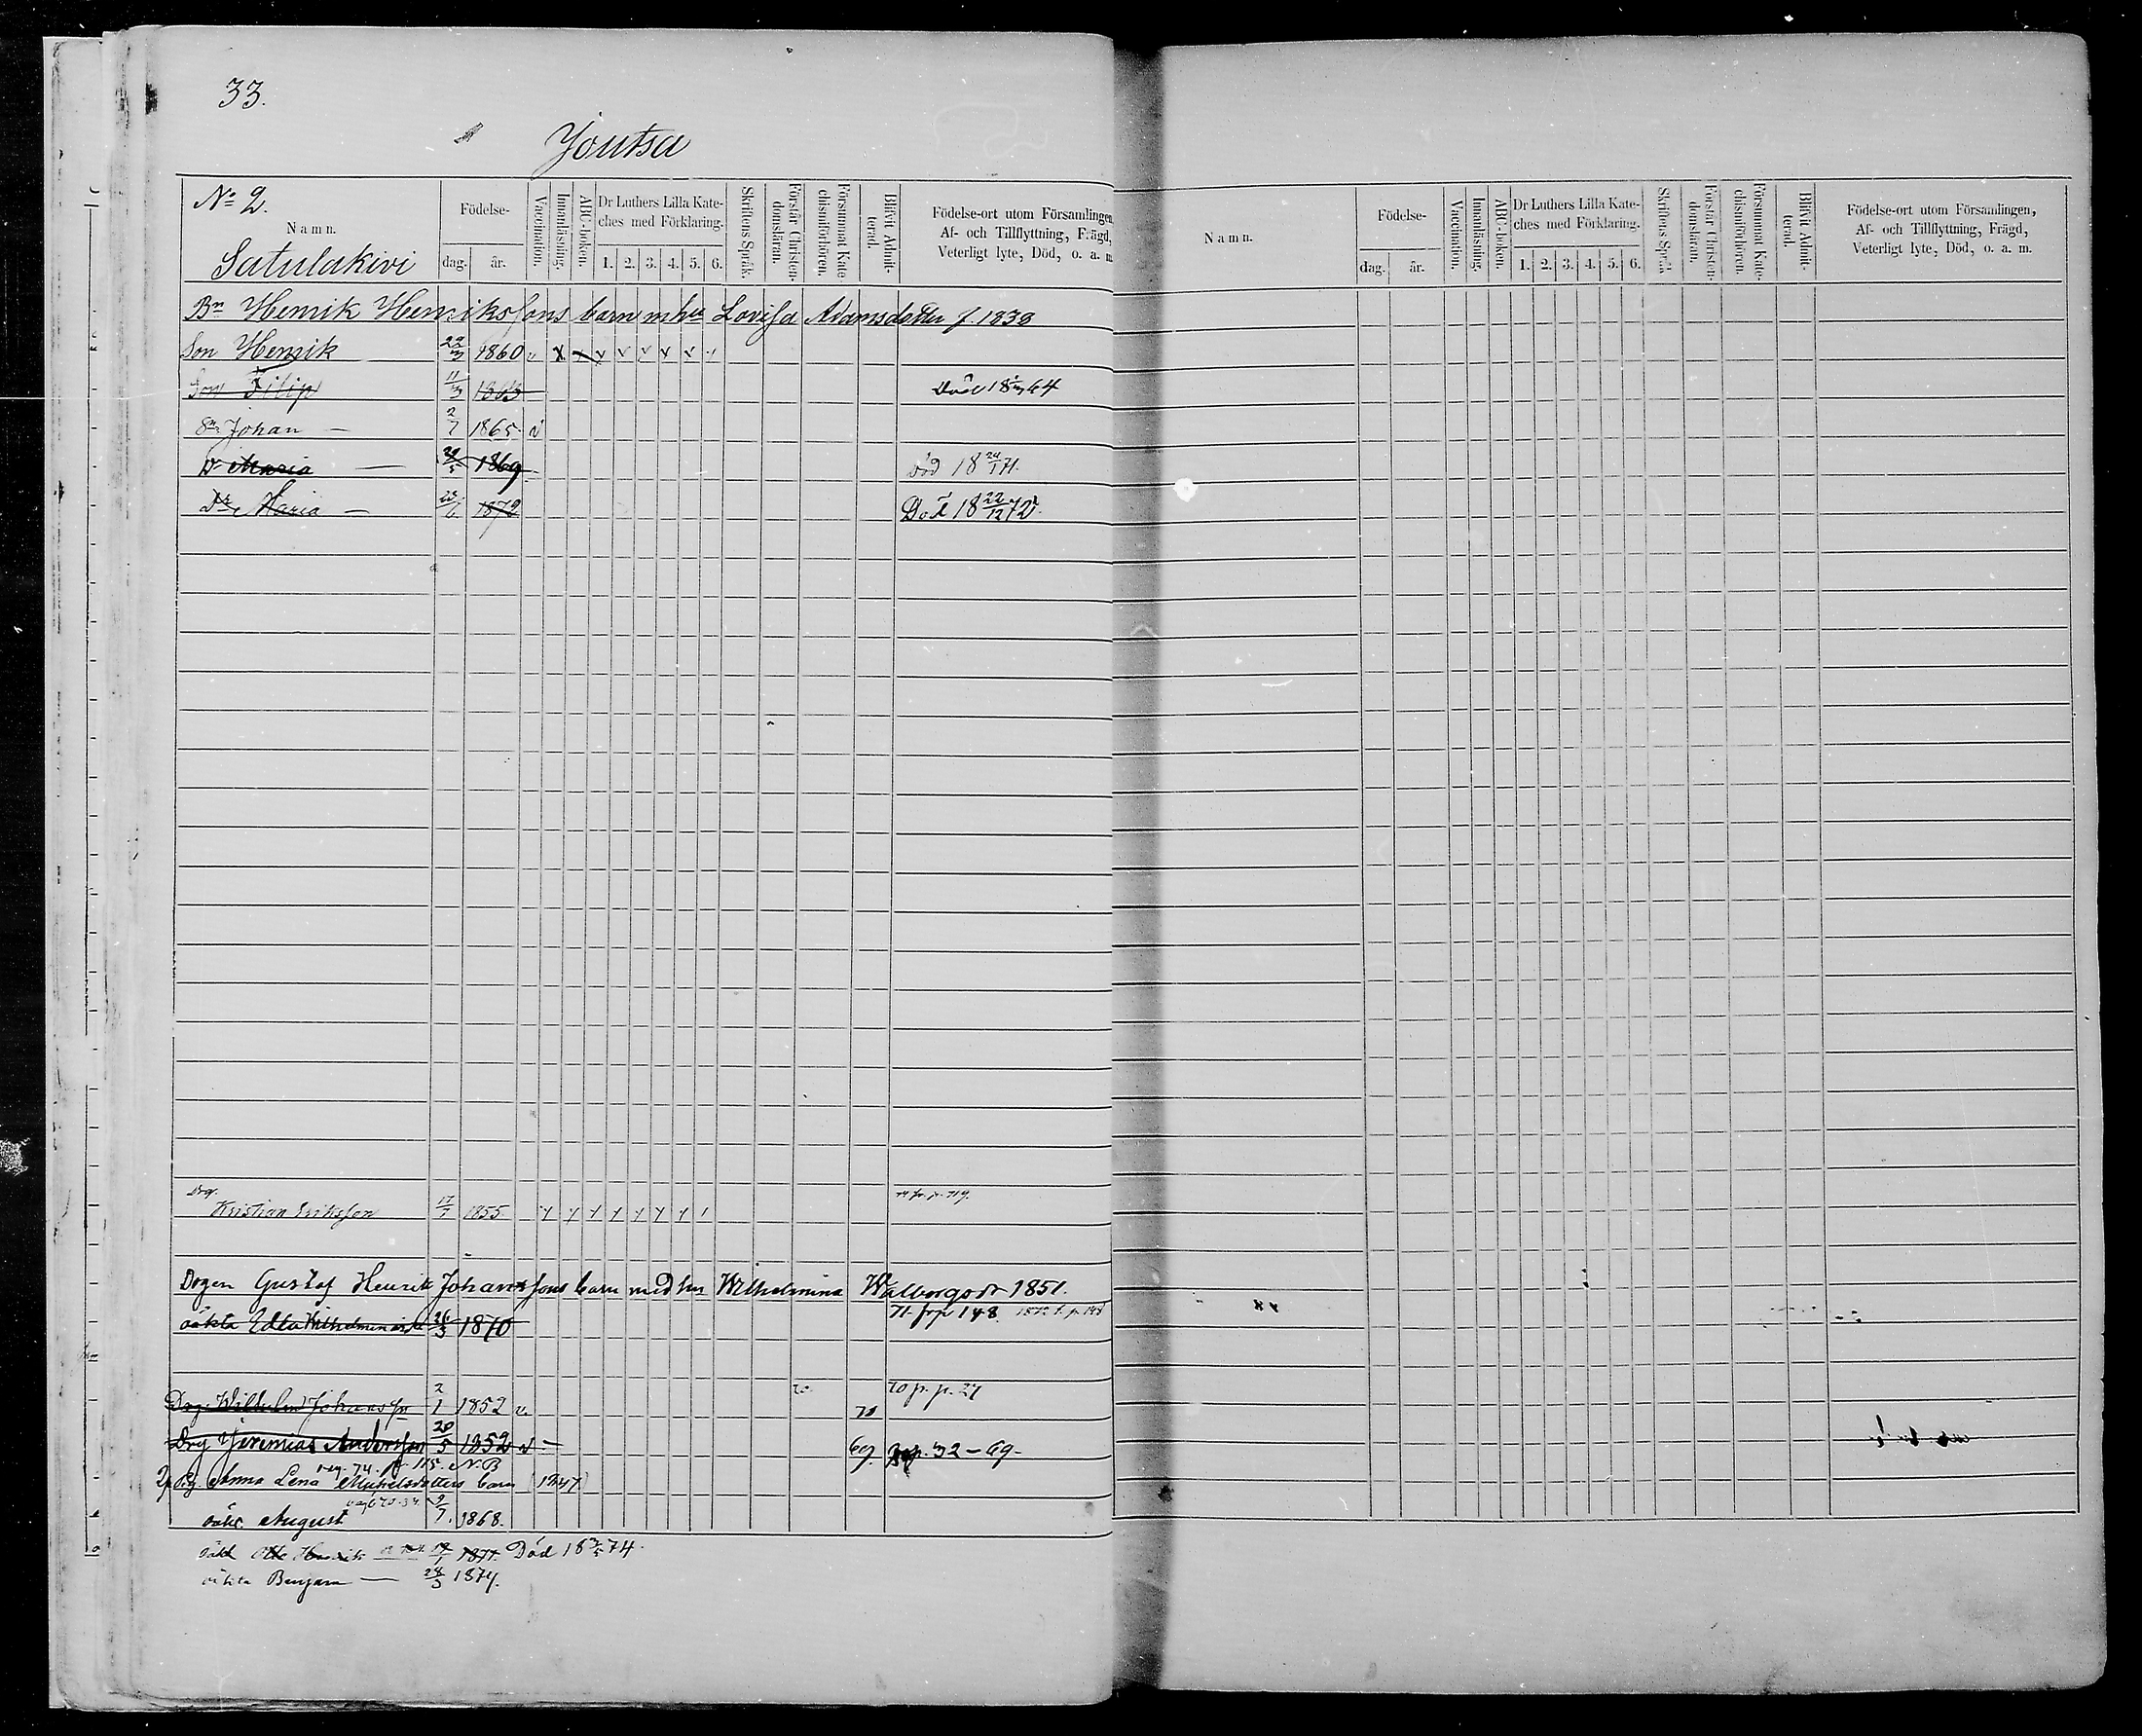 33.
Joutsa
No 2.
Namn.
Satulakivi
Födelse-
dag. år.
Vaccination.
Innanläsning.
ABC-boken.
Dr Luthers Lilla Kate-
ches med Förklaring.
1. 2. 3. 4. 5. 6.
Skriftens Språk.
Förstår Christen-
domsläran.
Försummat Kate
chismiförhören.
Blifvit Admit-
terad.
Födelse-ort utom Församlingen,
Af- och Tillflyttning, Frägd,
Veterligt lyte, Död, o. a. m.
Bn Henrik Henrikssons barn m hu Lovisa Adamsdotter f. 1838
Son Henrik 22/3 1860
Son Filip 11/3 1863 Död 18 64
Sn Johan — 2/7 1865
Dr Maria — 1869 Död 18 24/1 71.
Dr Maria — 1872 Död 18 22/12 72.
Drg.
Kristian Eriksson 1855
Drgen Gustaf Henrik Johanssons barn med hu Wilhelmina Walborgsdr 1851.
oäkta Edla Wilhelmina 26/3 1870 71 fr p 148
Drg. Wilhelm Johansson 2/1 1852 70 fr. p. 27
Drg Jeremias Andersson 20/5 1852 69. p. 32 – 69 –
Pig. Anna Lena Michelsdotters barn (1847)
oäkt. August 7. 1868.
oäkt Otto Henrik 1871. Död 18 74.
oäkta Benjam — 28/3 1874.
Namn.
Födelse-
dag. år.
Vaccination.
Innanläsning.
ABC-boken.
Dr Luthers Lilla Kate-
ches med Förklaring.
1. 2. 3. 4. 5. 6.
Skriftens Språk
Förstår Christen-
domsläran.
Försummat Kate-
chismiförhören.
Blifvit Admit-
terad.
Födelse-ort utom Församlingen,
Af- och Tillflyttning, Frägd,
Veterligt lyte, Död, o. a. m.